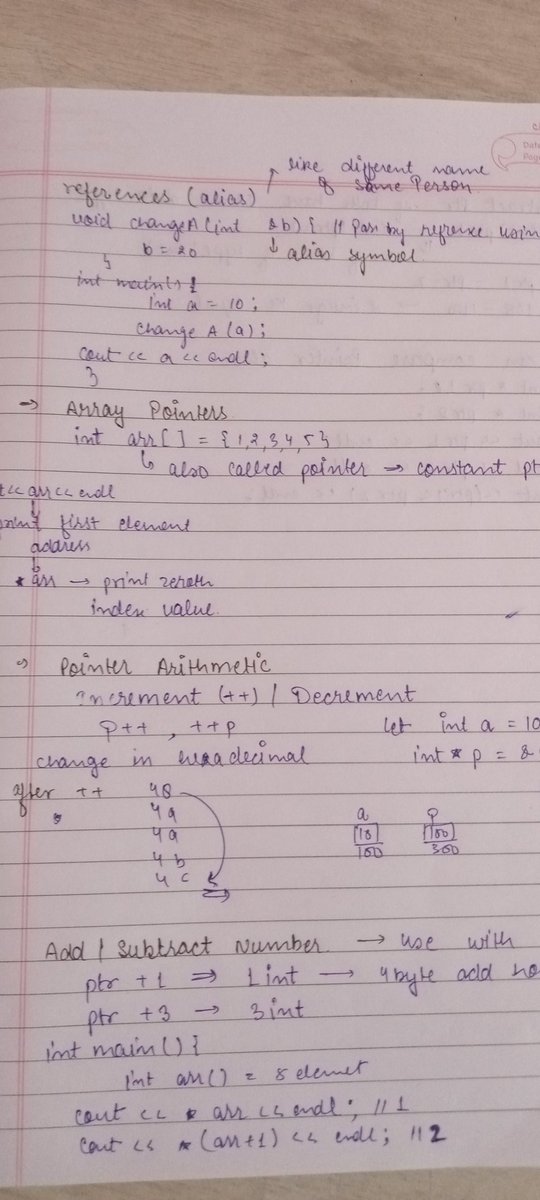 like different name
of same Person
references (alias)
void changeA (int &b) { // Pass by refrence usin
b = 20 ↓ alias symbol
}
int main() {
int a = 10;
change A (a);
cout << a << endl;
}
→ Array Pointers
int arr[ ] = {1,2,3,4,5}
↳ also called pointer → constant pt
t << arr << endl
print first element
address
* arr → print zeroth
index value.
⇒ Pointer Arithmetic
Increment (++) / Decrement
p++ , ++p let int a = 10
change in hexadecimal int * p = &
after ++ 48
4a a p
4a 10 100
4b 100 300
4c
Add / Subtract Number → use with
ptr + 1 ⇒ 1 int → 4 byte add
ptr + 3 → 3 int
int main() {
int arr() = 5 elemet
cout << * arr << endl; // 1
cout << *(arr+1) << endl; // 2